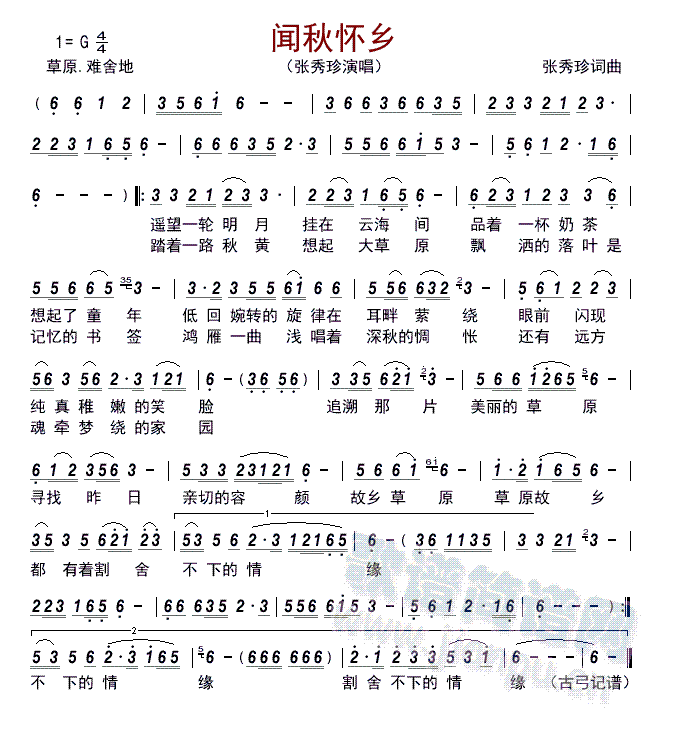 闻秋怀乡
1= G 4/4
草原.难舍地 （张秀珍演唱） 张秀珍词曲
( 6 6 1 2 | 3 5 6 1 6 - - | 3 6 6 3 6 6 3 5 | 2 3 3 2 1 2 3 · |
2 2 3 1 6 5 6 - | 6 6 6 3 5 2 · 3 | 5 5 6 6 1 5 3 - | 5 6 1 2 · 1 6 |
6 - - - ) ‖: 3 3 2 1 2 3 3 · | 2 2 3 1 6 5 6 - | 6 2 3 1 2 3 3 6 |
遥望一轮 明 月 挂在 云海 间 品着 一杯 奶 茶
踏着一路 秋 黄 想起 大草 原 飘 洒的 落 叶 是
5 5 6 6 5 35 3 - | 3 · 2 3 5 5 6 1 6 6 | 3 5 5 6 6 3 2 2 3 - | 5 6 1 2 2 3 |
想起了 童 年 低 回 婉转的 旋 律在 耳畔 萦 绕 眼前 闪现
记忆的 书 签 鸿 雁 一曲 浅 唱着 深秋的惆 怅 还有 远方
5 6 3 5 6 2 · 3 1 2 1 | 6 - ( 3 6 5 6 ) | 3 3 5 6 2 1 2 3 - | 5 6 6 1 2 6 5 5 6 - |
纯 真 稚 嫩 的笑 脸 追溯 那 片 美丽的 草 原
魂 牵 梦 绕 的家 园
6 1 2 3 5 6 3 - | 5 3 3 2 3 1 2 1 6 - | 5 6 6 1 6i 6 - | 1 · 2 1 6 5 6 - |
寻找 昨 日 亲切的容 颜 故乡 草 原 草 原故 乡
1
3 5 3 5 6 2 1 2 3 | 5 3 5 6 2 · 3 1 2 1 6 5 | 6 - ( 3 6 1 1 3 5 | 3 3 2 1 2 3 - |
都 有着割 舍 不 下的 情 缘
2 2 3 1 6 5 6 - | 6 6 6 3 5 2 · 3 | 5 5 6 6 1 5 3 - | 5 6 1 2 · 1 6 | 6 - - - ) :‖
2
5 3 5 6 2 · 3 1 6 5 | 5 6 - ( 6 6 6 6 6 6 ) | 2 · 1 2 3 3 5 3 1 | 6 - - - ‖
不 下的 情 缘 割 舍 不下的 情 缘 （古弓记谱）